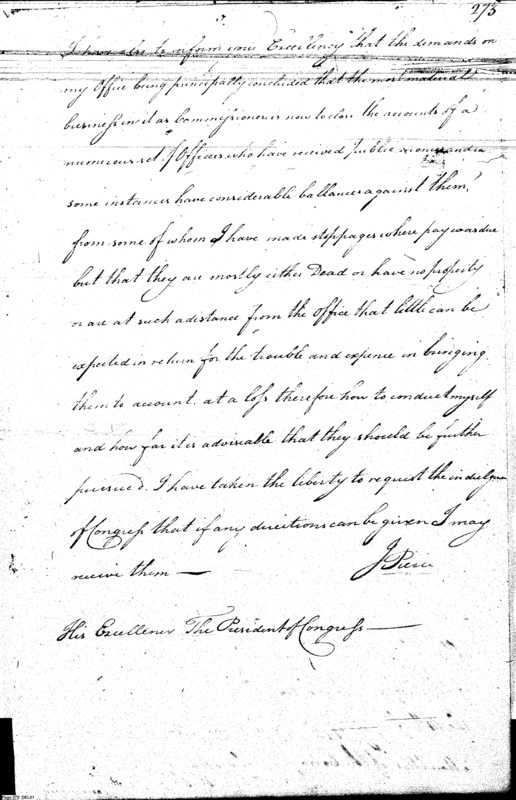 273
I have also to inform your Excellency that the demands on
my Office being principally concluded that the most material
business in it as Commissioner is now to close the accounts of a
numerous set of Officers who have received public monies and in
some instances have considerable ballances against them,
from some of whom I have made stoppages where pay was due
but that they are mostly either Dead or have no property
or are at such a distance from the Office that little can be
expected in return for the trouble and expence in bringing
them to account. at a loss therefore how to conduct myself
and how far it is adviseable that they should be further
pursued. I have taken the liberty to request the indulgence
of Congress that if any directions can be given I may
receive them —
J Pierce
His Excellency The President of Congress —